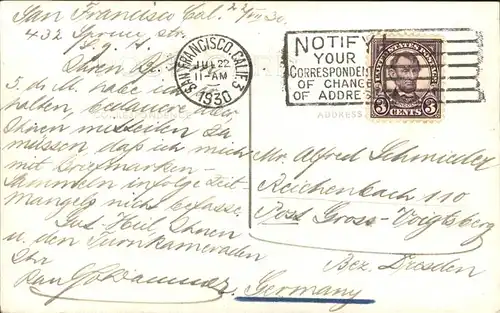 San Francisco Cal. 22/VII 30.
432 Spruce str.
S. g. H.
Ihren Bf.
5. d. M. habe ich
halten, bedauere aber
Ihnen mitteilen zu
müssen, daß ich mich
mit Briefmarken-
sammeln infolge Zeit-
mangels nicht befasse.
Gut Heil Ihnen
u. den Turnkameraden
Ihr
SAN FRANCISCO, CALIF. 3
JUL 22
11-AM
1930
NOTIFY
YOUR
CORRESPONDENTS
OF CHANGE
OF ADDRESS
UNITED STATES POSTAGE
3 CENTS 3
CORRESPONDENCE
ADDRESS
Mr. Alfred Schmieder
Reichenbach 110
Post Gross-Voigtsberg
Bez. Dresden
Germany